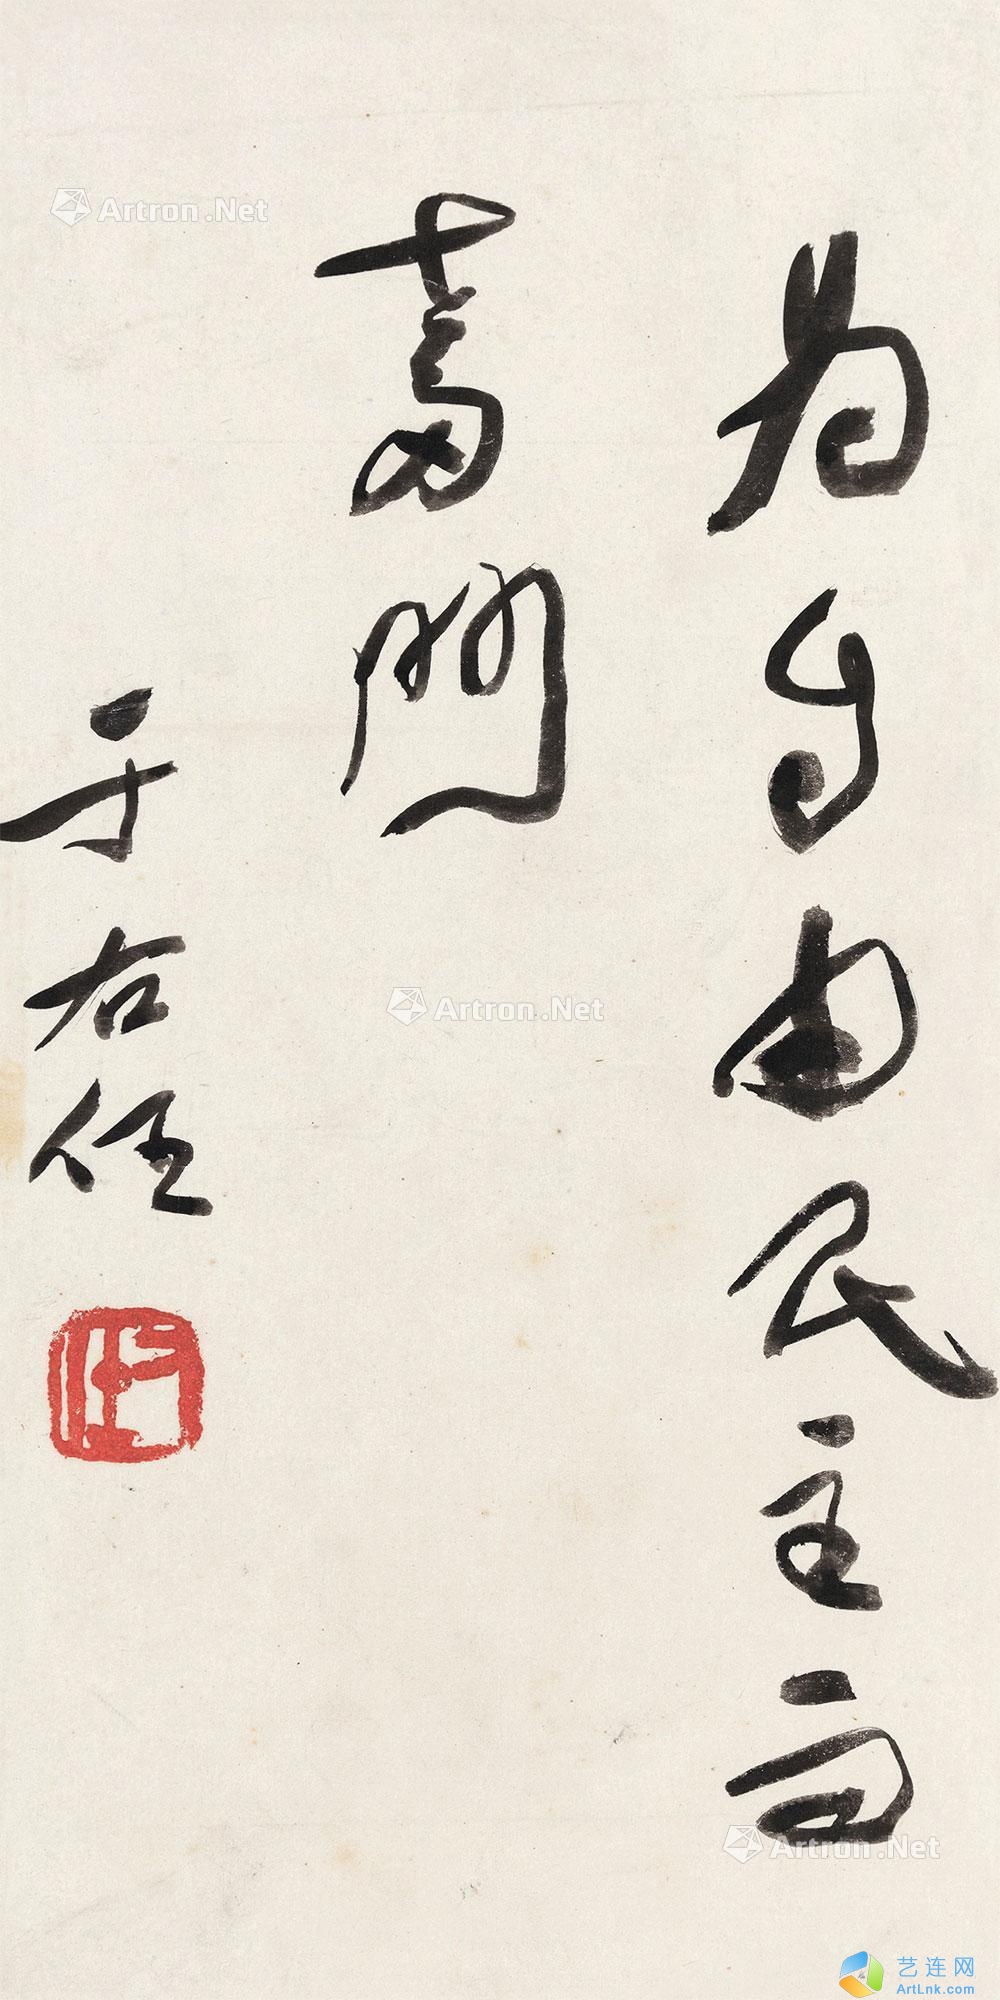 为自由民主而
奋鬥
于右任
右任
Artron.Net
Artron.Net
Artron.Net
艺连网
ArtLnk.com